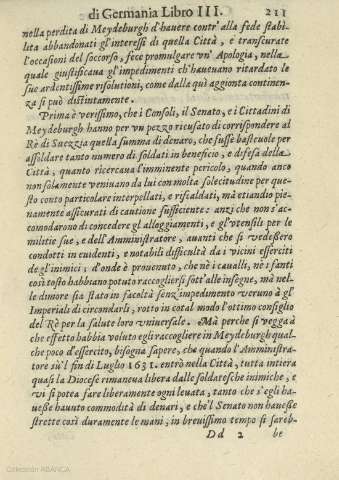 di Germania Libro III. 211
nella perdita di Meydeburgh d'hauere contr' alla fede stabi-
lita abbandonati gl'interessi di quella Città, e transcurate
l'occasioni del soccorso, fece promulgare vn' Apologia, nella
quale giustificaua gl'impedimenti ch'haueuano ritardato le
sue ardentissime risolutioni, come dalla quì aggionta continen-
za si può distintamente.
Prima è verissimo, che i Consoli, il Senato, e i Cittadini di
Meydeburgh hanno per vn pezzo ricusato di corrispondere al
Rè di Suezzia quella summa di denaro, che fusse basteuole per
assoldare tanto numero di soldati in beneficio, e difesa della
Città, quanto ricercaua l'imminente pericolo, quando anco
non solamente veniuano da lui con molta solecitudine per que-
sto conto particolare interpellati, e riscaldati, mà etiandio pie-
namente assicurati di cautione sufficiente: anzi che non s'ac-
comodarono di concedere gl'alloggiamenti, e gl'vtensili per le
militie sue, e dell'Amministratore, auanti che si vedessero
condotti in euidenti, e notabili difficoltà da i vicini esserciti
de gl'inimici; d'onde è prouenuto, che nè i caualli, nè i fanti
così tosto habbiano potuto raccogliersi sott' alle insegne, mà nel-
le dimore sia stato in facoltà senz'impedimento veruno à gl'
Imperiali di circondarli, rotto in cotal modo l'ottimo consiglio
del Rè per la salute loro vniuersale. Mà perche si vegga à
che effetto habbia voluto egli raccogliere in Meydeburgh qual-
che poco d'essercito, bisogna sapere, che quando l'Amministra-
tore sù'l fin di Luglio 1631. entrò nella Città, tutta intiera
quasi la Diocese rimaneua libera dalle soldatesche inimiche, e
vi si potea fare liberamente ogni leuata, tanto che s'egli ha-
uesse hauuto commodità di denari, e che'l Senato non hauesse
strette così duramente le mani, in breuissimo tempo si sareb-
Dd 2 be
Colección ABANCA